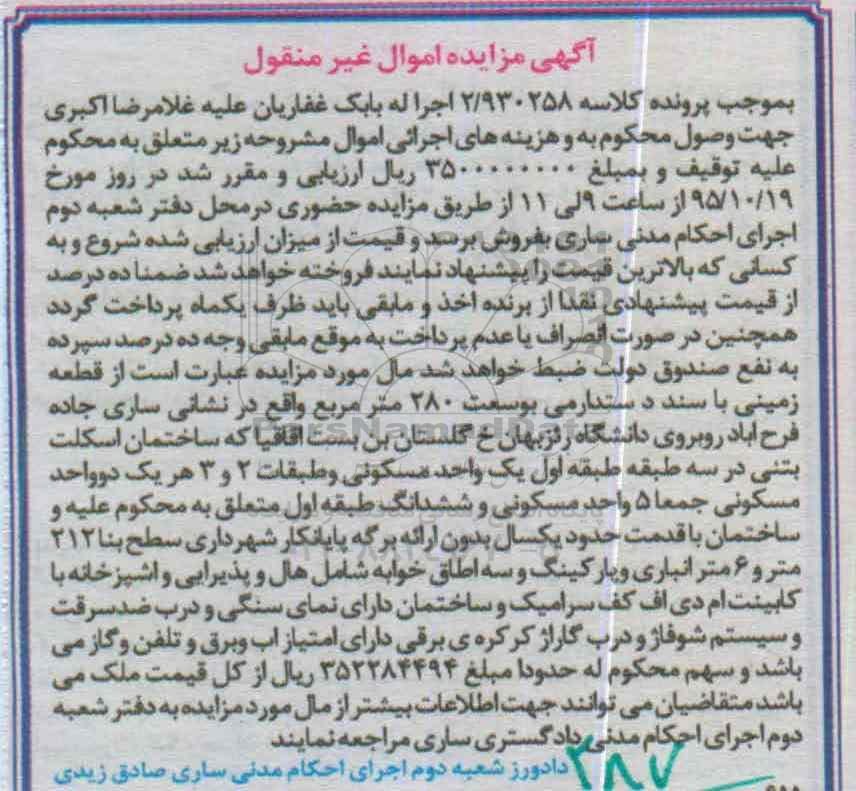 آگهی مزایده اموال غیر منقول
بموجب پرونده کلاسه ۲/۹۳۰۲۵۸ اجرا له بابک غفاریان علیه غلامرضا اکبری
جهت وصول محکوم به و هزینه های اجرائی اموال مشروحه زیر متعلق به محکوم
علیه توقیف و بمبلغ ۳۵۰۰۰۰۰۰۰۰ ریال ارزیابی و مقرر شد در روز مورخ
۹۵/۱۰/۱۹ از ساعت ۹لی ۱۱ از طریق مزایده حضوری درمحل دفتر شعبه دوم
اجرای احکام مدنی ساری بفروش برسد و قیمت از میزان ارزیابی شده شروع و به
کسانی که بالاترین قیمت را پیشنهاد نمایند فروخته خواهد شد ضمنا ده درصد
از قیمت پیشنهادی نقدا از برنده اخذ و مابقی باید ظرف یکماه پرداخت گردد
همچنین در صورت انصراف یا عدم پرداخت به موقع مابقی وجه ده درصد سپرده
به نفع صندوق دولت ضبط خواهد شد مال مورد مزایده عبارت است از قطعه
زمینی با سند د ستدارمی بوسعت ۲۸۰ متر مربع واقع در نشانی ساری جاده
فرح اباد روبروی دانشگاه رئزبهان خ گلستان بن بست اقاقیا که ساختمان اسکلت
بتنی در سه طبقه طبقه اول یک واحد مسکونی وطبقات ۲ و ۳ هر یک دوواحد
مسکونی جمعا ۵ واحد مسکونی و ششدانگ طبقه اول متعلق به محکوم علیه و
ساختمان با قدمت حدود یکسال بدون ارائه برگه پایانکار شهرداری سطح بنا ۲۱۲
متر و ۶ متر انباری وپارکینگ و سه اطاق خوابه شامل هال و پذیرایی و اشپزخانه با
کابینت ام دی اف کف سرامیک و ساختمان دارای نمای سنگی و درب ضدسرقت
و سیستم شوفاژ و درب گاراژ کرکره ی برقی دارای امتیاز اب وبرق و تلفن و گاز می
باشد و سهم محکوم له حدودا مبلغ ۳۵۲۲۸۴۴۹۴ ریال از کل قیمت ملک می
باشد متقاضیان می توانند جهت اطلاعات بیشتر از مال مورد مزایده به دفتر شعبه
دوم اجرای احکام مدنی دادگستری ساری مراجعه نمایند
دادورز شعبه دوم اجرای احکام مدنی ساری صادق زیدی
۳۸۷
ParsNamadData